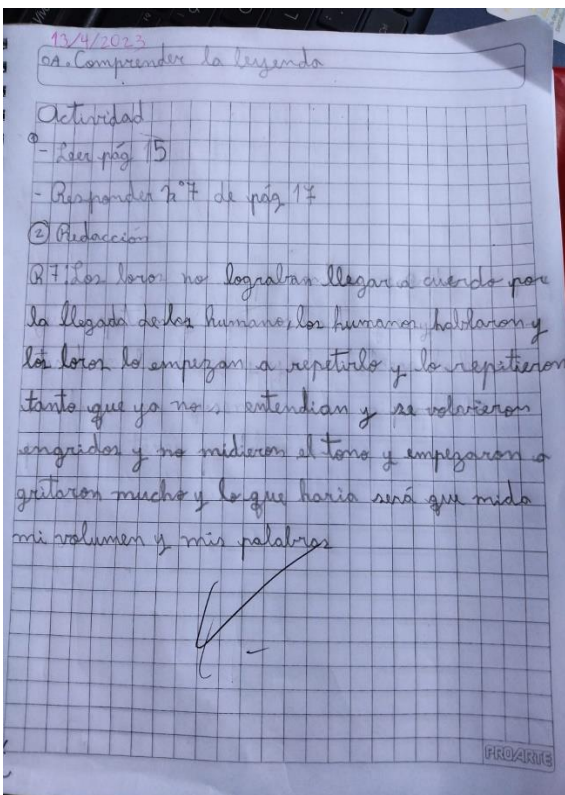 13/4/2023
OA. Comprender la leyenda
Actividad
① - Leer pág 15
- Responder n°7 de pág 17
② Redacción
R7: Los loros no lograban llegar a cuerdo por
la llegada de los humano, los humanos hablaron y
los loros lo empezan a repetirlo y lo repitieron
tanto que ya no entendian y se volvieron
engridos y no midieron el tono y empezaron a
gritaron mucho y lo que haria será que mida
mi volumen y mis palabras
PROARTE